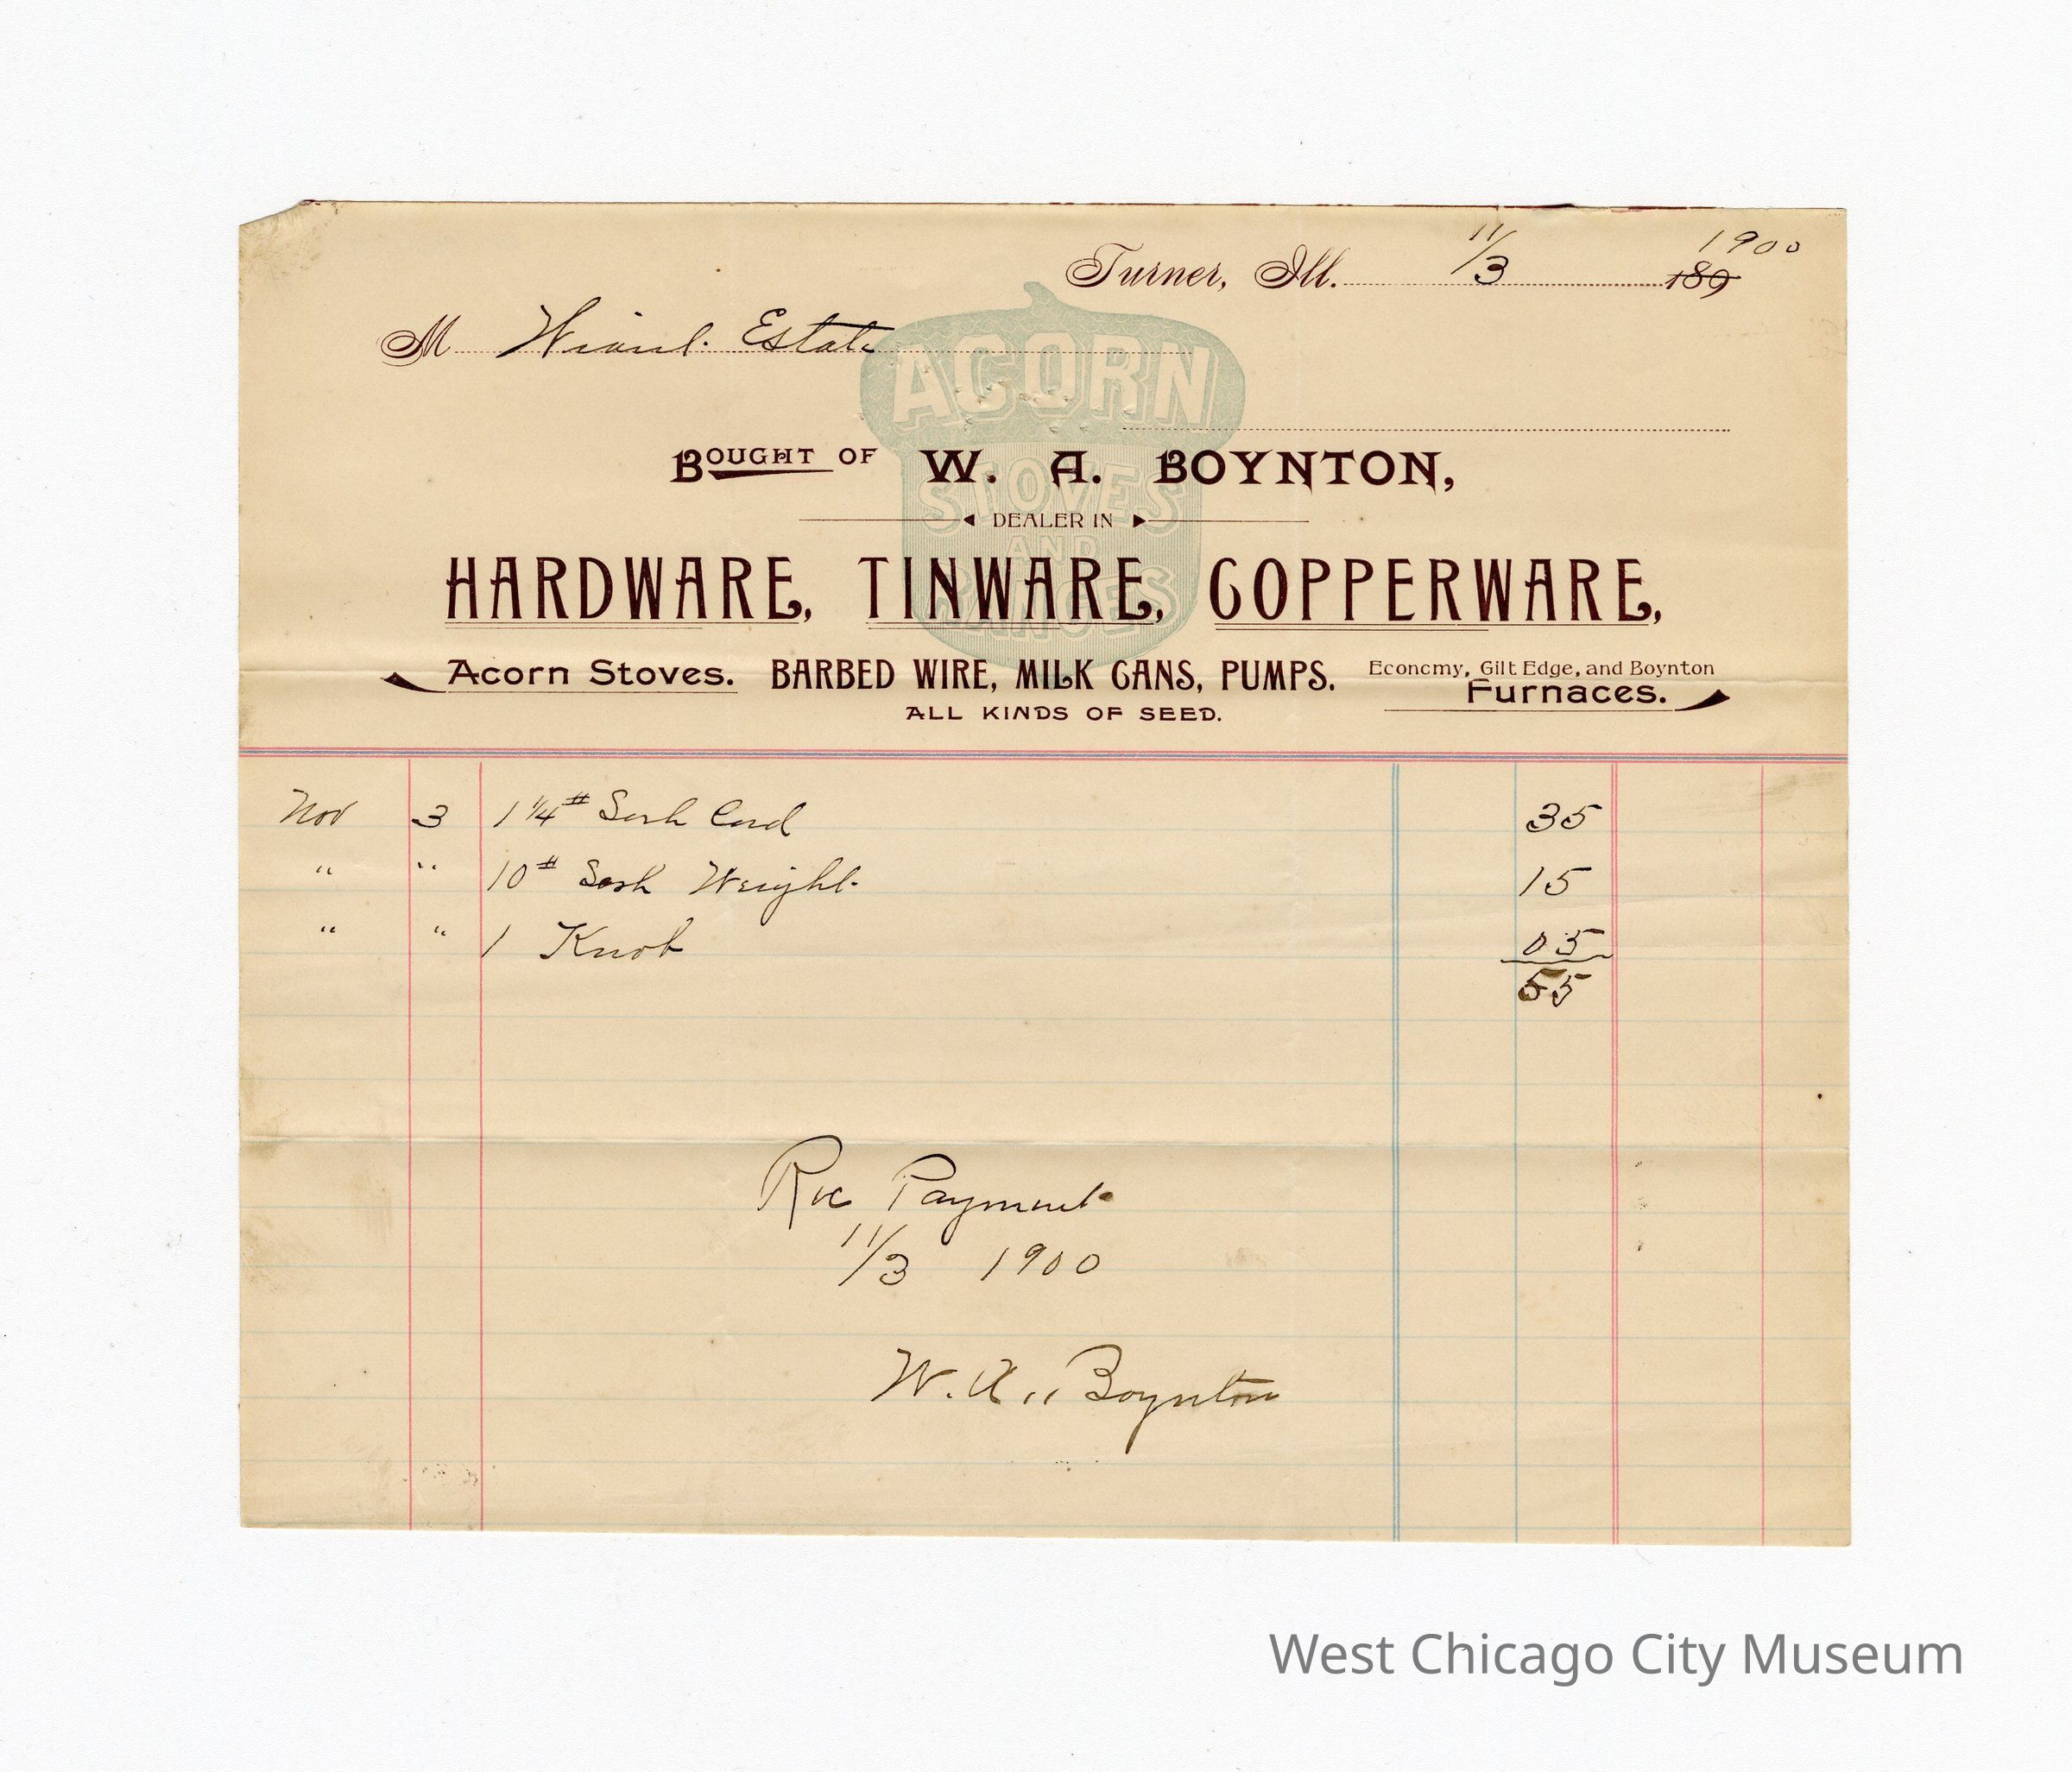 Turner, Ill. 11/3 1900 189
M Wiant. Estate
ACORN
STOVES
AND
RANGES
BOUGHT OF W. A. BOYNTON,
DEALER IN
HARDWARE, TINWARE, COPPERWARE,
Acorn Stoves. BARBED WIRE, MILK CANS, PUMPS. Economy, Gilt Edge, and Boynton Furnaces.
ALL KINDS OF SEED.
Nov 3 1 1/4 # Sash Cord 35
" " 10 # Sash Weight. 15
" " 1 Knob 05
55
Rec Payment
11/3 1900
W. A,, Boynton
West Chicago City Museum